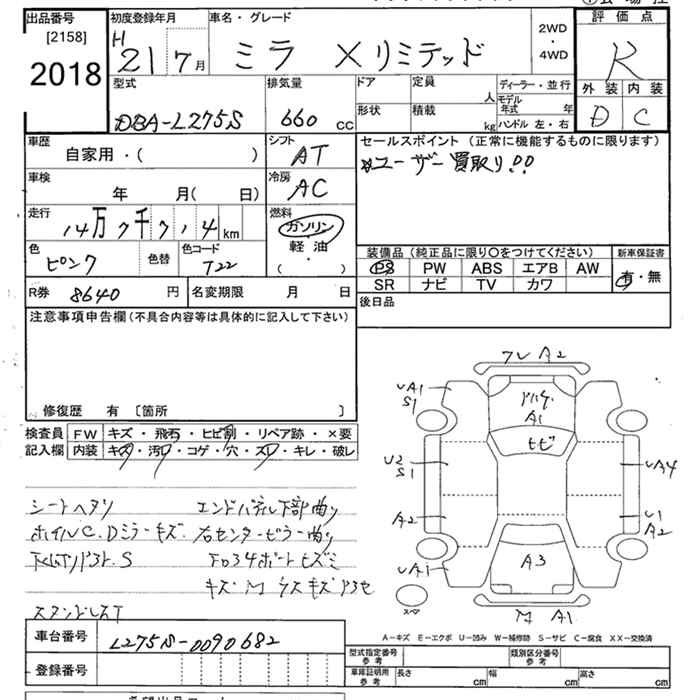 出品番号 初度登録年月 車名・グレード 2WD・4WD 評価点
[2158] H 21 7月 ミラ Xリミテッド R
2018
型式 排気量 ドア 定員 人 ディーラー・並行 外装 内装
DBA-L275S 660 CC 形状 積載 kg モデル年式 年 D C
ハンドル 左・右
車歴 シフト セールスポイント(正常に機能するものに限ります)
自家用・( ) AT ※ユーザー買取り!!
車検 冷房
年 月( 日) AC
走行 燃料
14万7千7 4 km ガソリン・軽油・( )
色 色替 色コード 装備品(純正品に限り〇をつけてください) 新車保証書
ピンク T22 PS PW ABS エアB AW 有・無
SR ナビ TV カワ
R券 8640 円 名変期限 月 日 後日品
注意事項申告欄(不具合内容等は具体的に記入して下さい)
修復歴 有 〔箇所 〕
検査員 FW キズ・飛石・ヒビ割・リペア跡・×要
記入欄 内装 キズ・汚レ・コゲ・穴・スレ・キレ・破レ
フレ A2
UA1 S1
A1
ヒビ
U2 S1
UA4
A2
U1 A2
A3
UA1
スペア
M A1
シートヘタリ エンドパネル下部曲り
ホイルC.Dミラーキズ. 右センターピラー曲り
キズ・M
車台番号 L275S-0090682
登録番号
A-キズ E-エクボ U-凹み W-補修跡 S-サビ C-腐食 XX-交換済
型式指定番号 参考 類別区分番号 参考
車庫証明用 参考 長さ cm 幅 cm 高さ cm